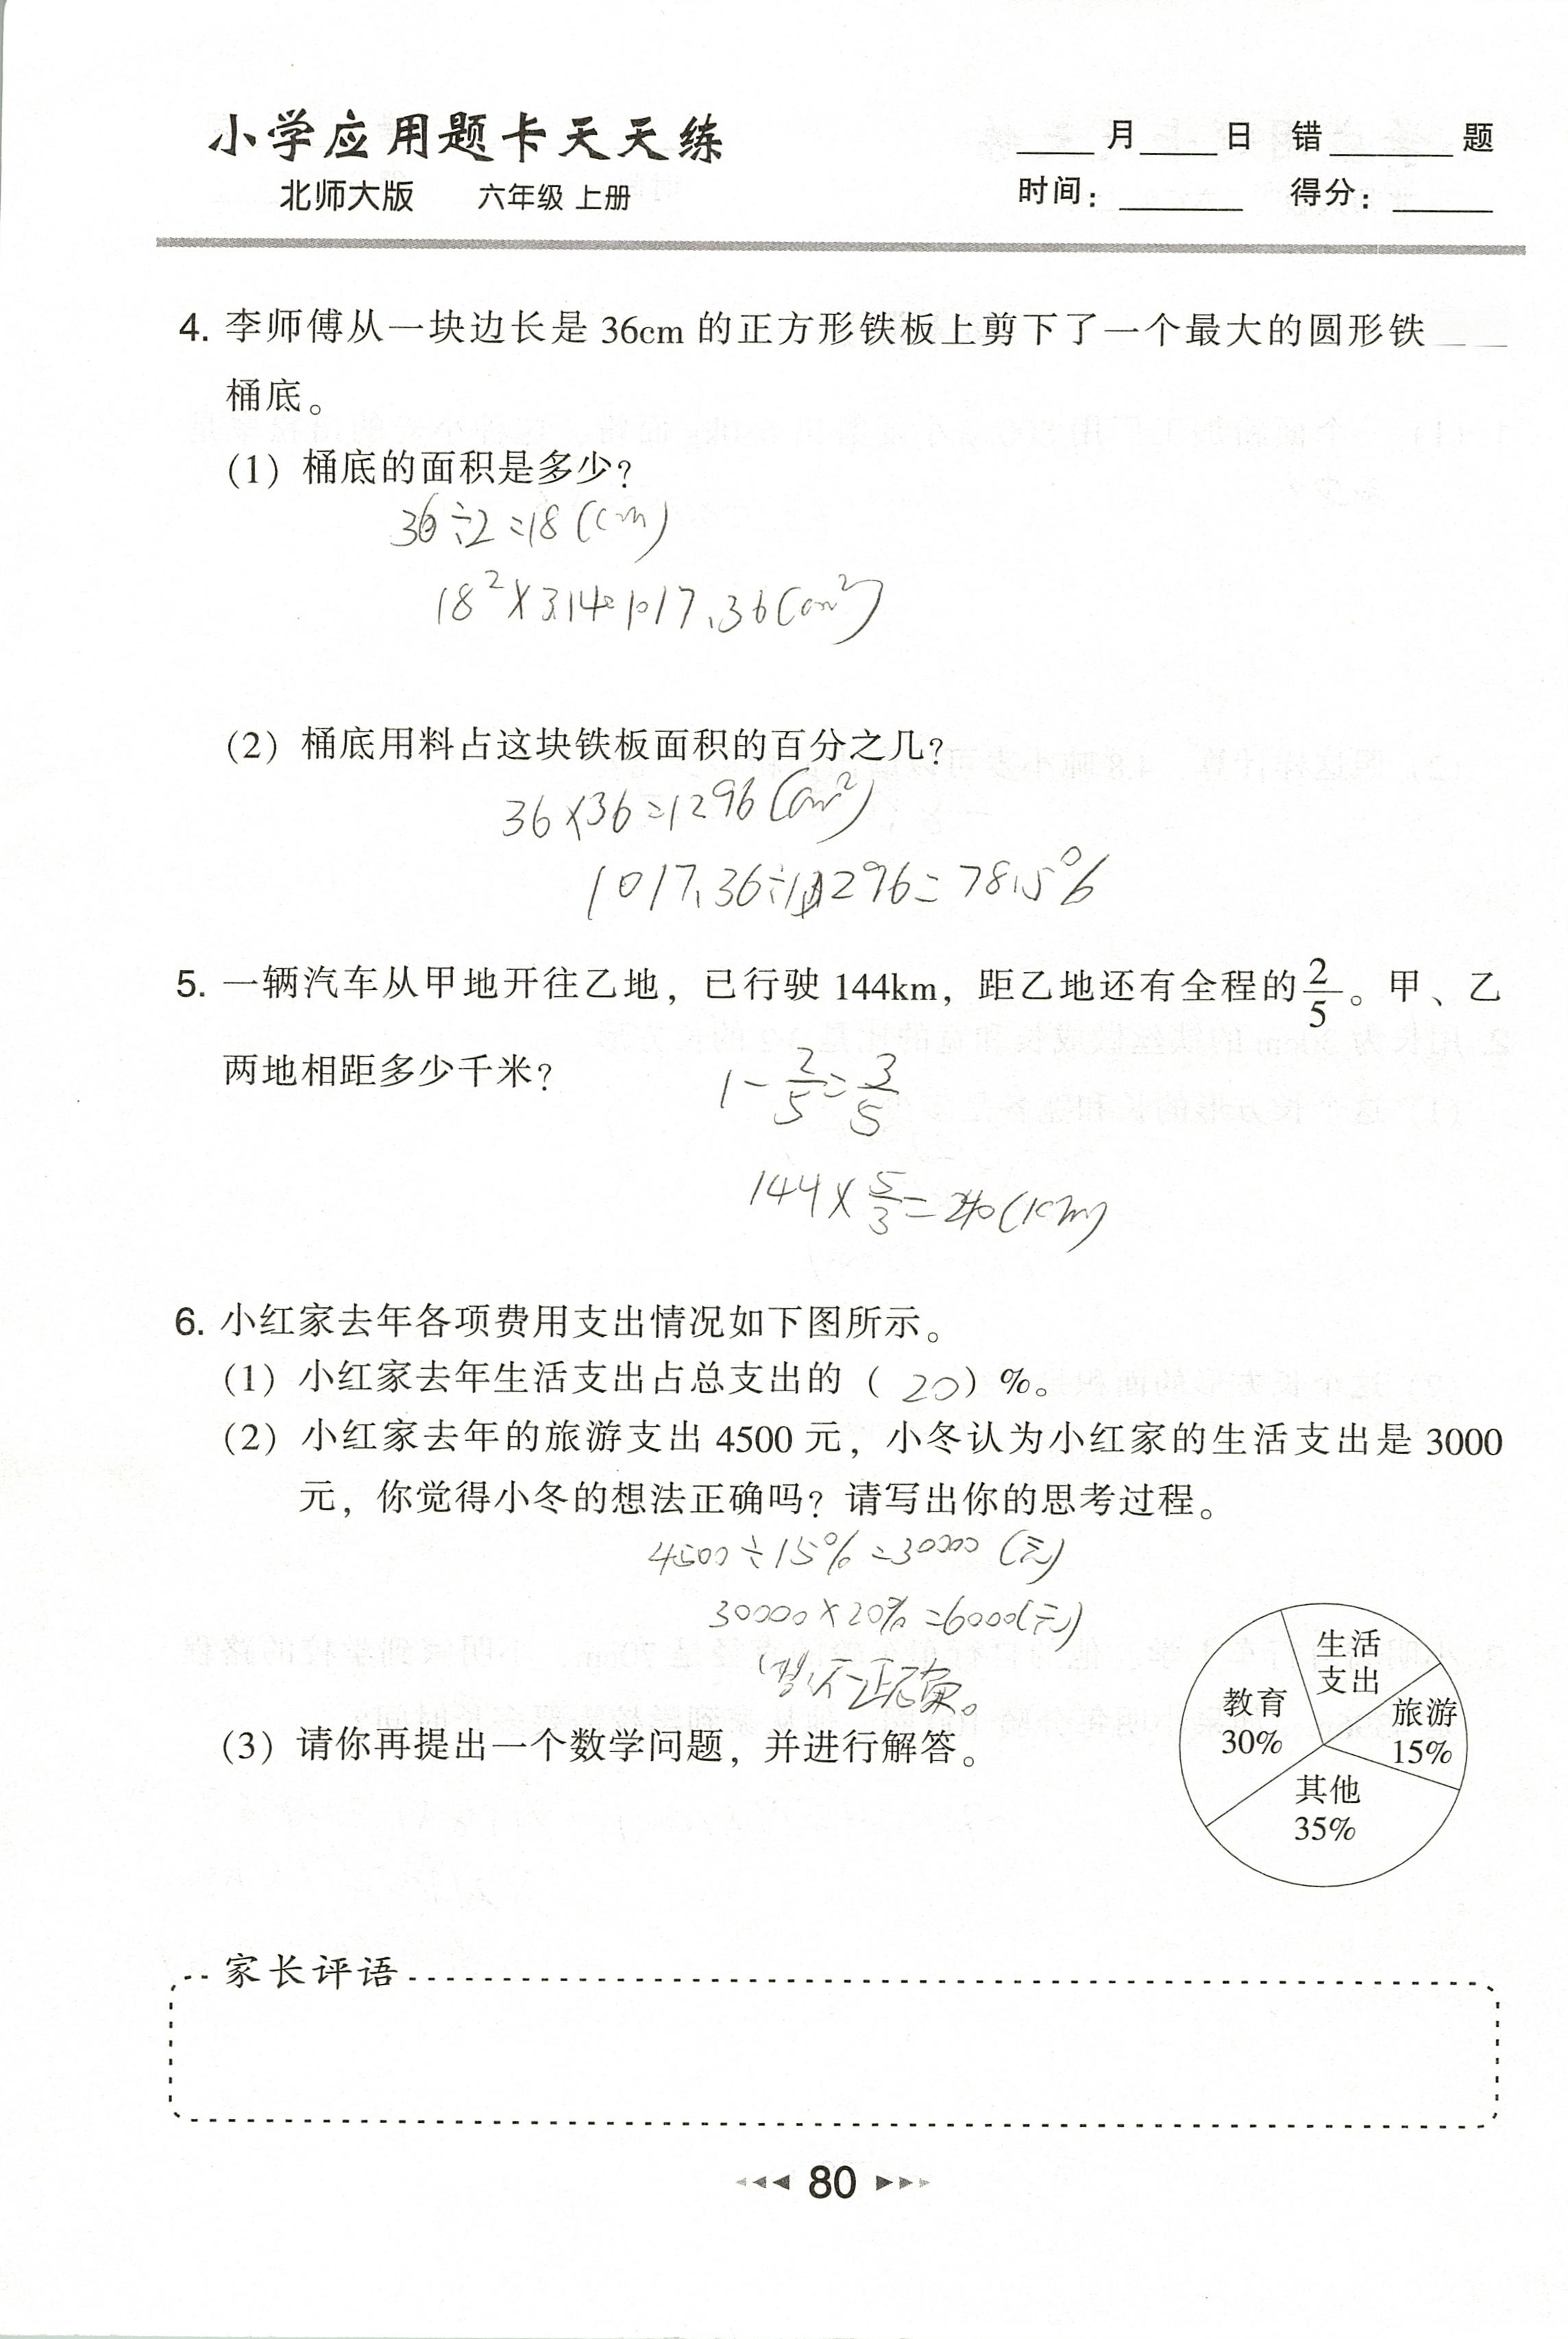 小学应用题卡天天练
北师大版 六年级 上册
____月____日 错______题
时间：______ 得分：_____
4. 李师傅从一块边长是 36cm 的正方形铁板上剪下了一个最大的圆形铁
桶底。
(1) 桶底的面积是多少？
36÷2=18(cm)
18²×3.14=1017.36(cm²)
(2) 桶底用料占这块铁板面积的百分之几？
36×36=1296(cm²)
1017.36÷1296=78.5%
5. 一辆汽车从甲地开往乙地，已行驶 144km，距乙地还有全程的2/5。甲、乙
两地相距多少千米？
1-2/5=3/5
144×5/3=240(km)
6. 小红家去年各项费用支出情况如下图所示。
(1) 小红家去年生活支出占总支出的（ 20 ）%。
(2) 小红家去年的旅游支出 4500 元，小冬认为小红家的生活支出是 3000
元，你觉得小冬的想法正确吗？请写出你的思考过程。
4500÷15%=30000(元)
30000×20%=6000(元)
答:不正确。
(3) 请你再提出一个数学问题，并进行解答。
生活
支出
教育
30%
旅游
15%
其他
35%
家长评语
80